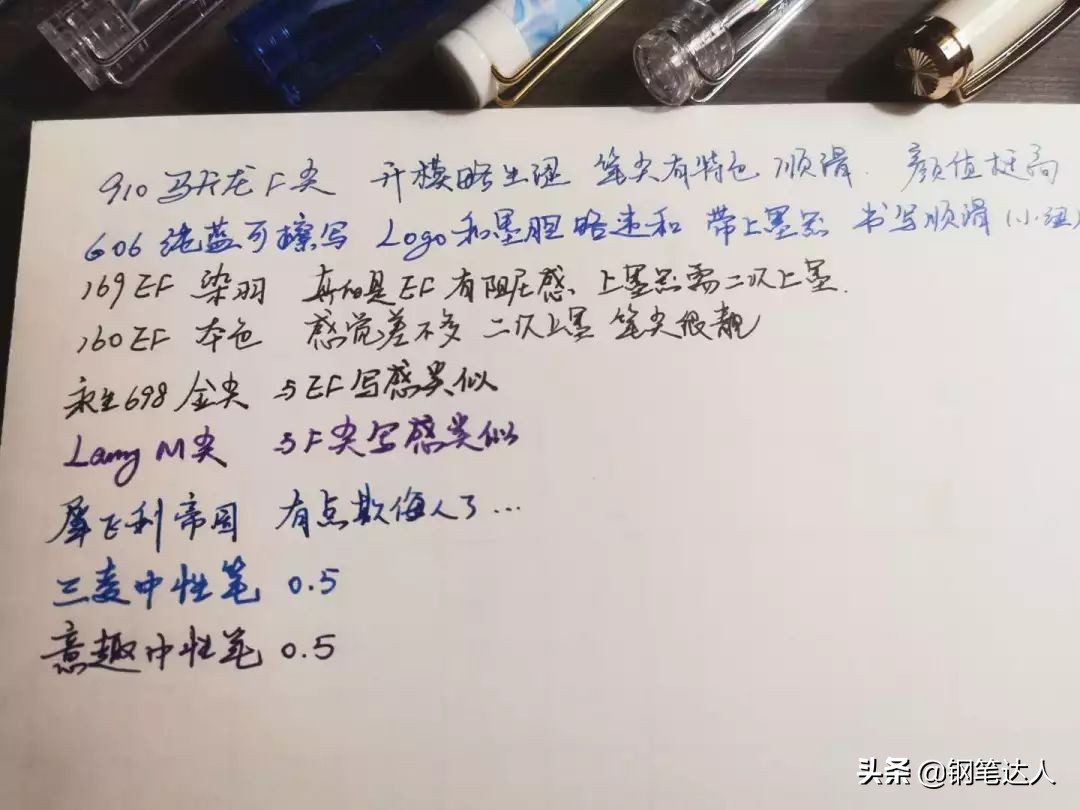 910 马卡龙 F尖 开模略生涩 笔尖有特色 顺滑. 颜值挺高
606 纯蓝可擦写 Logo和墨胆略违和 带上墨器 书写顺滑(小纽)
169 EF 染羽 真的是EF 有阻尼感、上墨器需二次上墨.
160 EF 本色 感觉差不多 二次上墨 笔尖很靓
永生698 金尖 与EF写感类似
Lamy M尖 与F尖写感类似
犀飞利帝国 有点欺侮人了...
三菱中性笔 0.5
意趣中性笔 0.5
头条 @钢笔达人